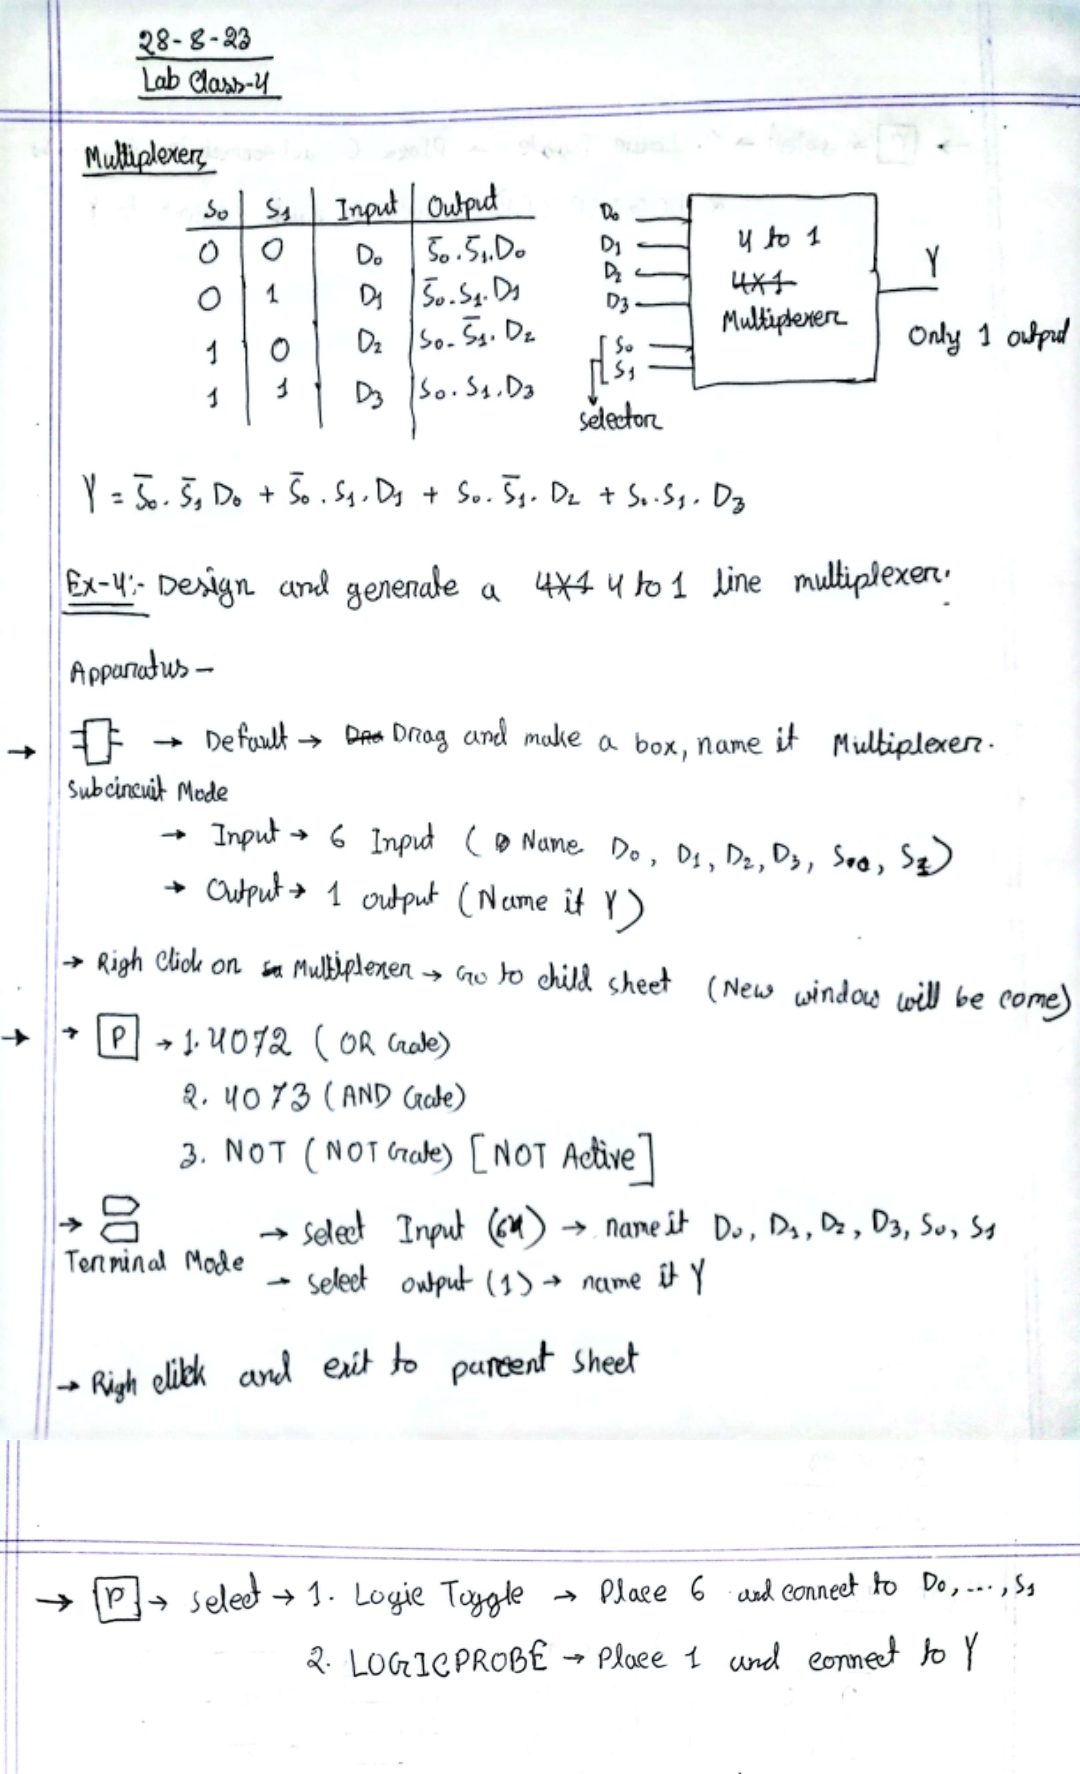 28-8-23
Lab Class-4
Multiplexer
S₀ S₁ Input Output
0 0 D₀ S̅₀.S̅₁.D₀
0 1 D₁ S̅₀.S₁.D₁
1 0 D₂ S₀.S̅₁.D₂
1 1 D₃ S₀.S₁.D₃
D₀
D₁
D₂
D₃
S₀
S₁
selector
4 to 1
4X1
Multiplexer
Y
Only 1 output
Y = S̅₀.S̅₁ D₀ + S̅₀.S₁.D₁ + S₀.S̅₁.D₂ + S₀.S₁.D₃
Ex-4:- Design and generate a 4X1 4 to 1 line multiplexer.
Apparatus -
→ → Default → Dra Drag and make a box, name it Multiplexer.
Subcircuit Mode
→ Input → 6 Input ( Name D₀, D₁, D₂, D₃, S₀, S₁)
→ Output → 1 output (Name it Y)
→ Righ Click on Multiplexer → Go to child sheet (New window will be come)
→ → P → 1. 4072 (OR Gate)
2. 4073 (AND Gate)
3. NOT (NOT Gate) [NOT Active]
→ → select Input (6) → name it D₀, D₁, D₂, D₃, S₀, S₁
Terminal Mode → select output (1) → name it Y
→ Righ click and exit to parent sheet
→ P → select → 1. Logic Toggle → Place 6 and connect to D₀,...,S₁
2. LOGICPROBE → Place 1 and connect to Y